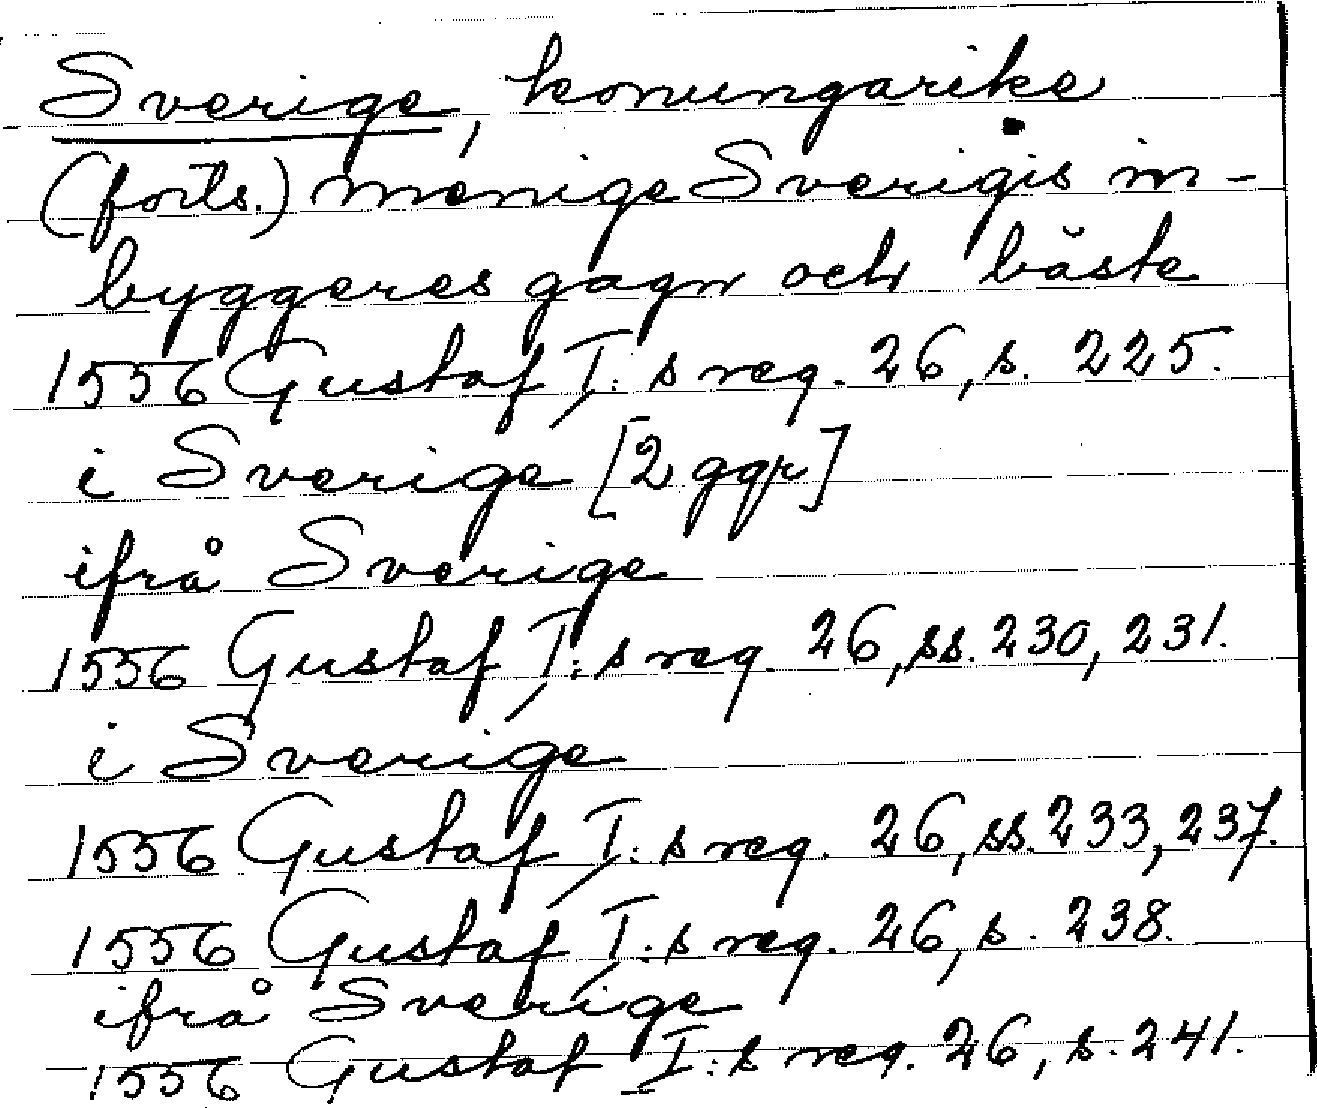 Sverige, konungarike
(forts.) menige Sverigis in-
byggeres gagn och bäste
1556 Gustaf I:s reg. 26, s. 225.
i Sverige [2 ggr]
ifrå Sverige
1556 Gustaf I:s reg. 26, ss. 230, 231.
i Sverige
1556 Gustaf I:s reg. 26, ss. 233, 237.
1556 Gustaf I:s reg. 26, s. 238.
ifrå Sverige
1556 Gustaf I:s reg. 26, s. 241.